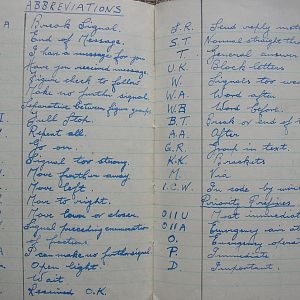 ABBREVIATIONS
A Break Signal.
End of Message.
I have a message for you.
Have you received message.
check to follow.
Make no further signal.
Separation between figure groups.
Full Stop.
Repeat all.
Go on.
Signal too strong.
Move further away.
Move left.
Move to right.
Move lower or closer.
Signal preceding enumeration
of fractions.
I can make no further signal
Open light.
Wait
Received O.K.
Send reply
S.T Normal straight
T General answer
U.K. Block letters
W. Signals too
W.A. Word after
W.B Word before.
B.T. Break or end of
A.A. After
G.R. Group in text.
K.K. Brackets
M. Via
I.C.W. In code by
Priority Prefixes
O11U Most immediate
O11A Emergency
O. Emergency
P. Immediate
D Important.